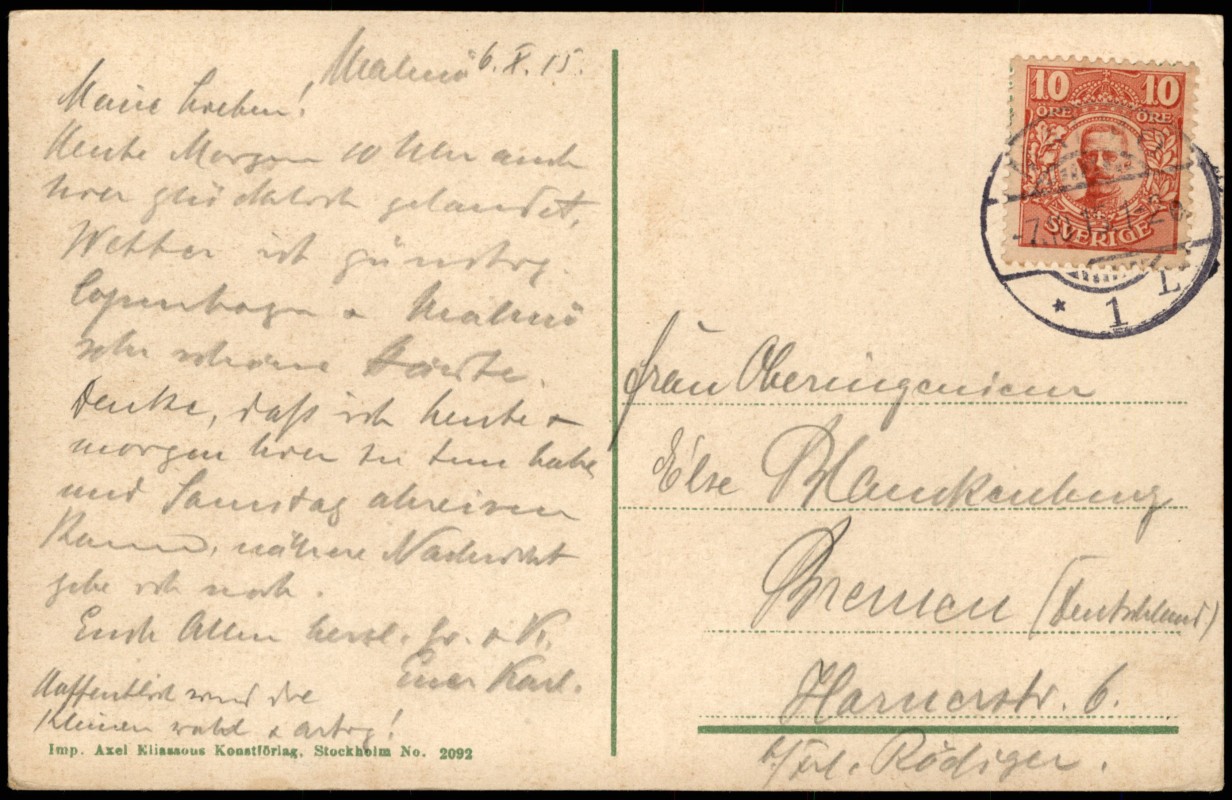 Malmö 6. X. 15.
Meine Lieben!
Heute Morgen 10 Uhr auch
hier glücklich gelandet,
Wetter ist günstig.
Copenhagen u Malmö
sehr schöne Städte.
Denke, daß ich heute u
morgen hier zu tun habe
und Samstag abreisen
kann, nähere Nachricht
gebe ich noch.
Euch Allen herzl. Gr. u K.
Euer Karl.
Hoffentlich sind die
Kleinen wohl u artig!
Imp. Axel Eliassons Konstförlag, Stockholm No. 2092
10 10
ÖRE ÖRE
SVERIGE
* 1 L
Frau Oberingenieur
Else Blankenburg
Bremen (Deutschland)
Harnerstr. 6.
b/Frl. Rödiger.